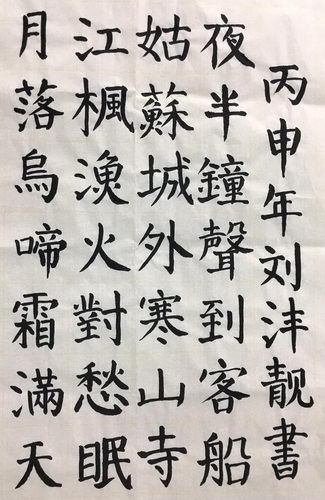 月落烏啼霜滿天
江楓漁火對愁眠
姑蘇城外寒山寺
夜半鐘聲到客船
丙申年刘沣靓書